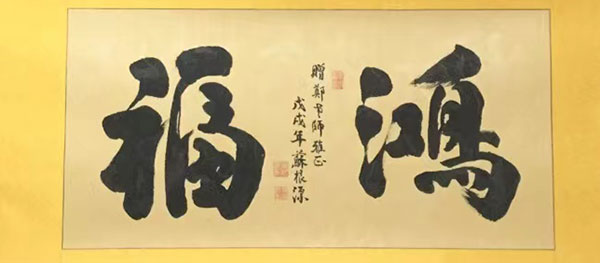 鴻福
贈鄭老師雅正
戊戌年蘇根源